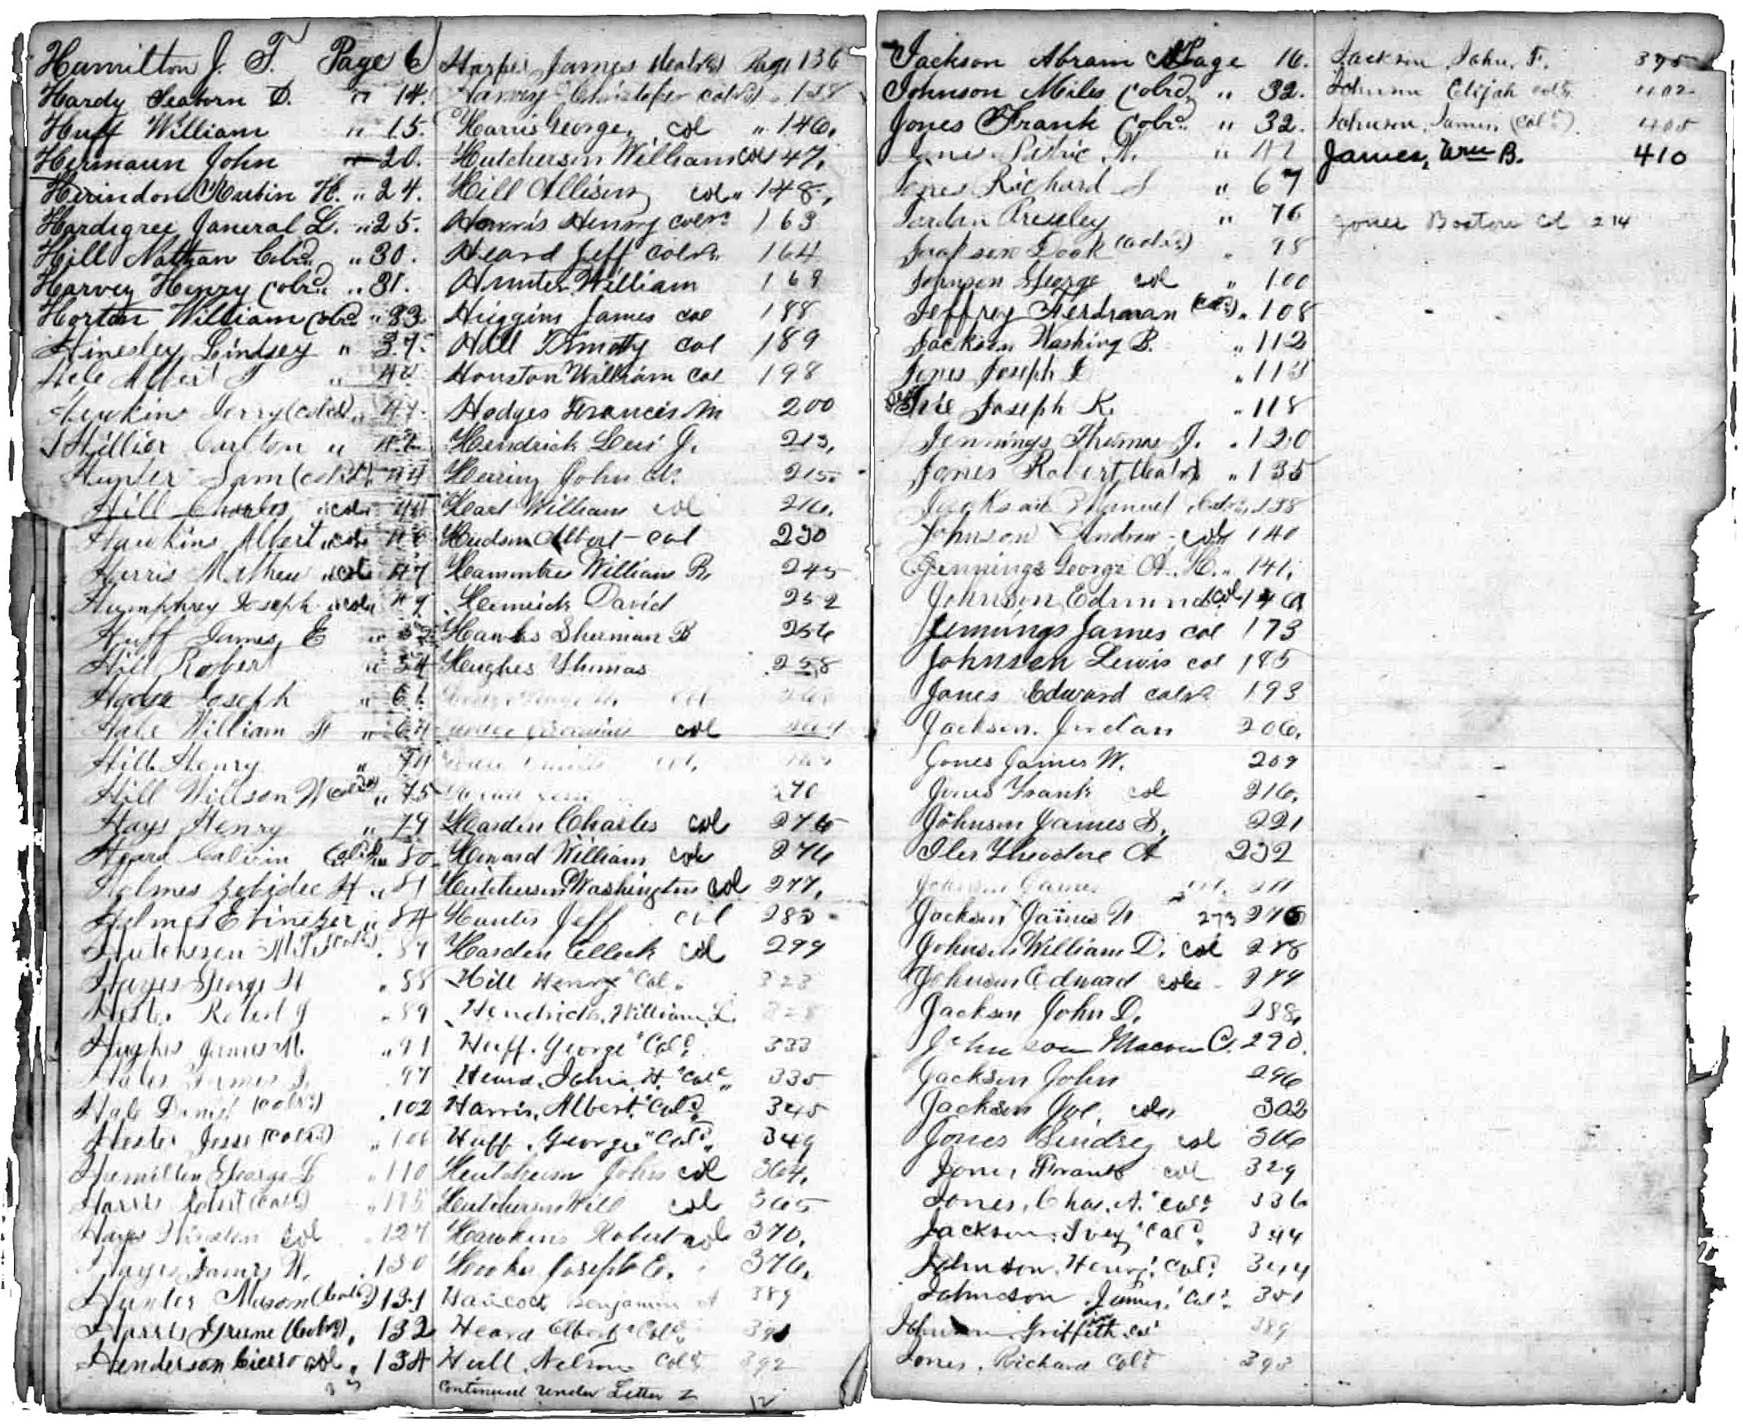 Hamilton J. T. Page 6
Hardy Seaborn D. " 14.
Huff William " 15.
Hermann John 20.
Herindon Rubin H. " 24.
Hardigree Janeral L. " 25.
Hill Nathan Colrd " 30.
Harvey Henry Colrd " 31.
Horton William Colrd " 33
Hinesley Lindsey " 37.
Albert T "
Jerry (Colrd)
Hillier Carlton "
Hunter Sam (Colrd) 44
Hill Charles col 44
Hawkins Albert col 46
Harris Mathew col 47
Humphrey Joseph col 49
Huff James E "
Hill Robert " 54
Hodge Joseph " 61
Hale William F " 64
Hill Henry " 74
Hill Willson W Colrd " 75
Hays Henry " 79
Heard Calvin 80
Holmes Zebidee H " 81
Holmes Ebinezer " 84
Hutcheson 87
Hayes George H " 88
Hester Robert J " 89
Hughes James M. " 91
Hales James J. 97
Hale Daniel (Colrd) 102
Hester Jesse (Colrd) " 106
Hamilton George L " 110
Harris Robert (Colrd) " 115
Hays Winston Col 127
Hayes James W. 130
Hunter Mason (Colrd) 131
Harris Greene (Colrd), 132
Henderson Cicero col. 134
Harper James (Colrd) Page 136
Harvey Christopher Colrd " 138
Harris George, col " 146.
Hutcherson William Col 147.
Hill Allison col " 148.
Harris Henry colrd 163
Heard Jeff colrd 164
Hunter William 169
Higgins James col 188
Hill Timothy col 189
Houston William col 198
Hodges Francis M 200
Hendrick Levi J. 213.
Herring John A. 215.
William col 216.
Hudson Albert - col 230
William R. 245
David 252
Hawks Sherman B 256
Hughes Thomas 258
col
col
270
Harden Charles col 275
Howard William col 276
Hutcherson Washington col 277.
Jeff col 285
Harden Elleck col 299
Hill Henry "Col" 323
Hendricks, William L. 328
Huff. George "Cold" 333
Heard, John H. "Cold" 335
Harris, Albert, "Cold" 345
Huff, George "Cold" 349
Hutcheson John col 364.
Hutcherson Will col 365
Hawkins Robert col 370.
Hooks Joseph E. 376.
Hancock Benjamin 389
Heard Elbert "Cold"
Hull, Nelson Cold 392
Continued under Letter I
Jackson Abram Page 16.
Johnson Miles Colrd " 32.
Jones Frank Colrd " 32.
Jones
Jones Richard S " 67
Jordan Presley " 76
Jackson Dook (Colrd) " 98
Johnson George col " 100
Jeffrey Ferdinan (Col) " 108
Jackson Washing B. " 112
Jones Joseph " 113
Joseph K. " 118
Jennings Thomas J. " 120
Jones Robert (Colrd) " 135
Jackson Manuel Colrd 138
Johnson Andrew - col 140
Jennings George A. H. " 141.
Johnson Edmund col
Jennings James col 173
Johnson Lewis col 185
Jones Edward colrd 193
Jackson Jordan 206.
Jones James W. 209
Jones Frank col 216.
Johnson James S. 221
Iler Theodore A 232
Johnson James
Jackson James 273 275
Johnson William D. col 278
Johnson Edward col 279
Jackson John D. 288.
Johnson Macon C. 290.
Jackson John 296
Jackson Joe, col 302
Jones Lindsey col 306
Jones Frank col 329
Jones, Chas. A. "Cold" 336
Jackson, Ivey "Cold" 344
Johnson, Henry "Cold" 344
Johnson James, "Cold" 351
Johnson Griffith col 389
Jones, Richard Cold 393
Jackson John, F. 395
Johnson Elijah cold 402
Johnson, James, (Cold) 405
James, Wm B. 410
Jones Boston Col 214